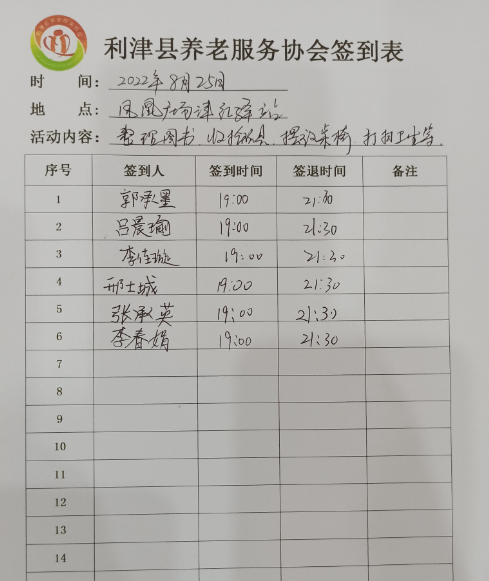 利津县养老服务协会签到表
时 间: 2022年8月25日
地 点: 凤凰广场津
活动内容: 整理图书 收拾 摆设桌椅 打扫卫生等.
序号 签到人 签到时间 签退时间 备注
1 郭承墨 19:00 21:30
2 吕晨瑜 19:00 21:30
3 李佳璇 19:00 21:30
4 邢士城 19:00 21:30
5 张承英 19:00 21:30
6 李春娟 19:00 21:30
7
8
9
10
11
12
13
14